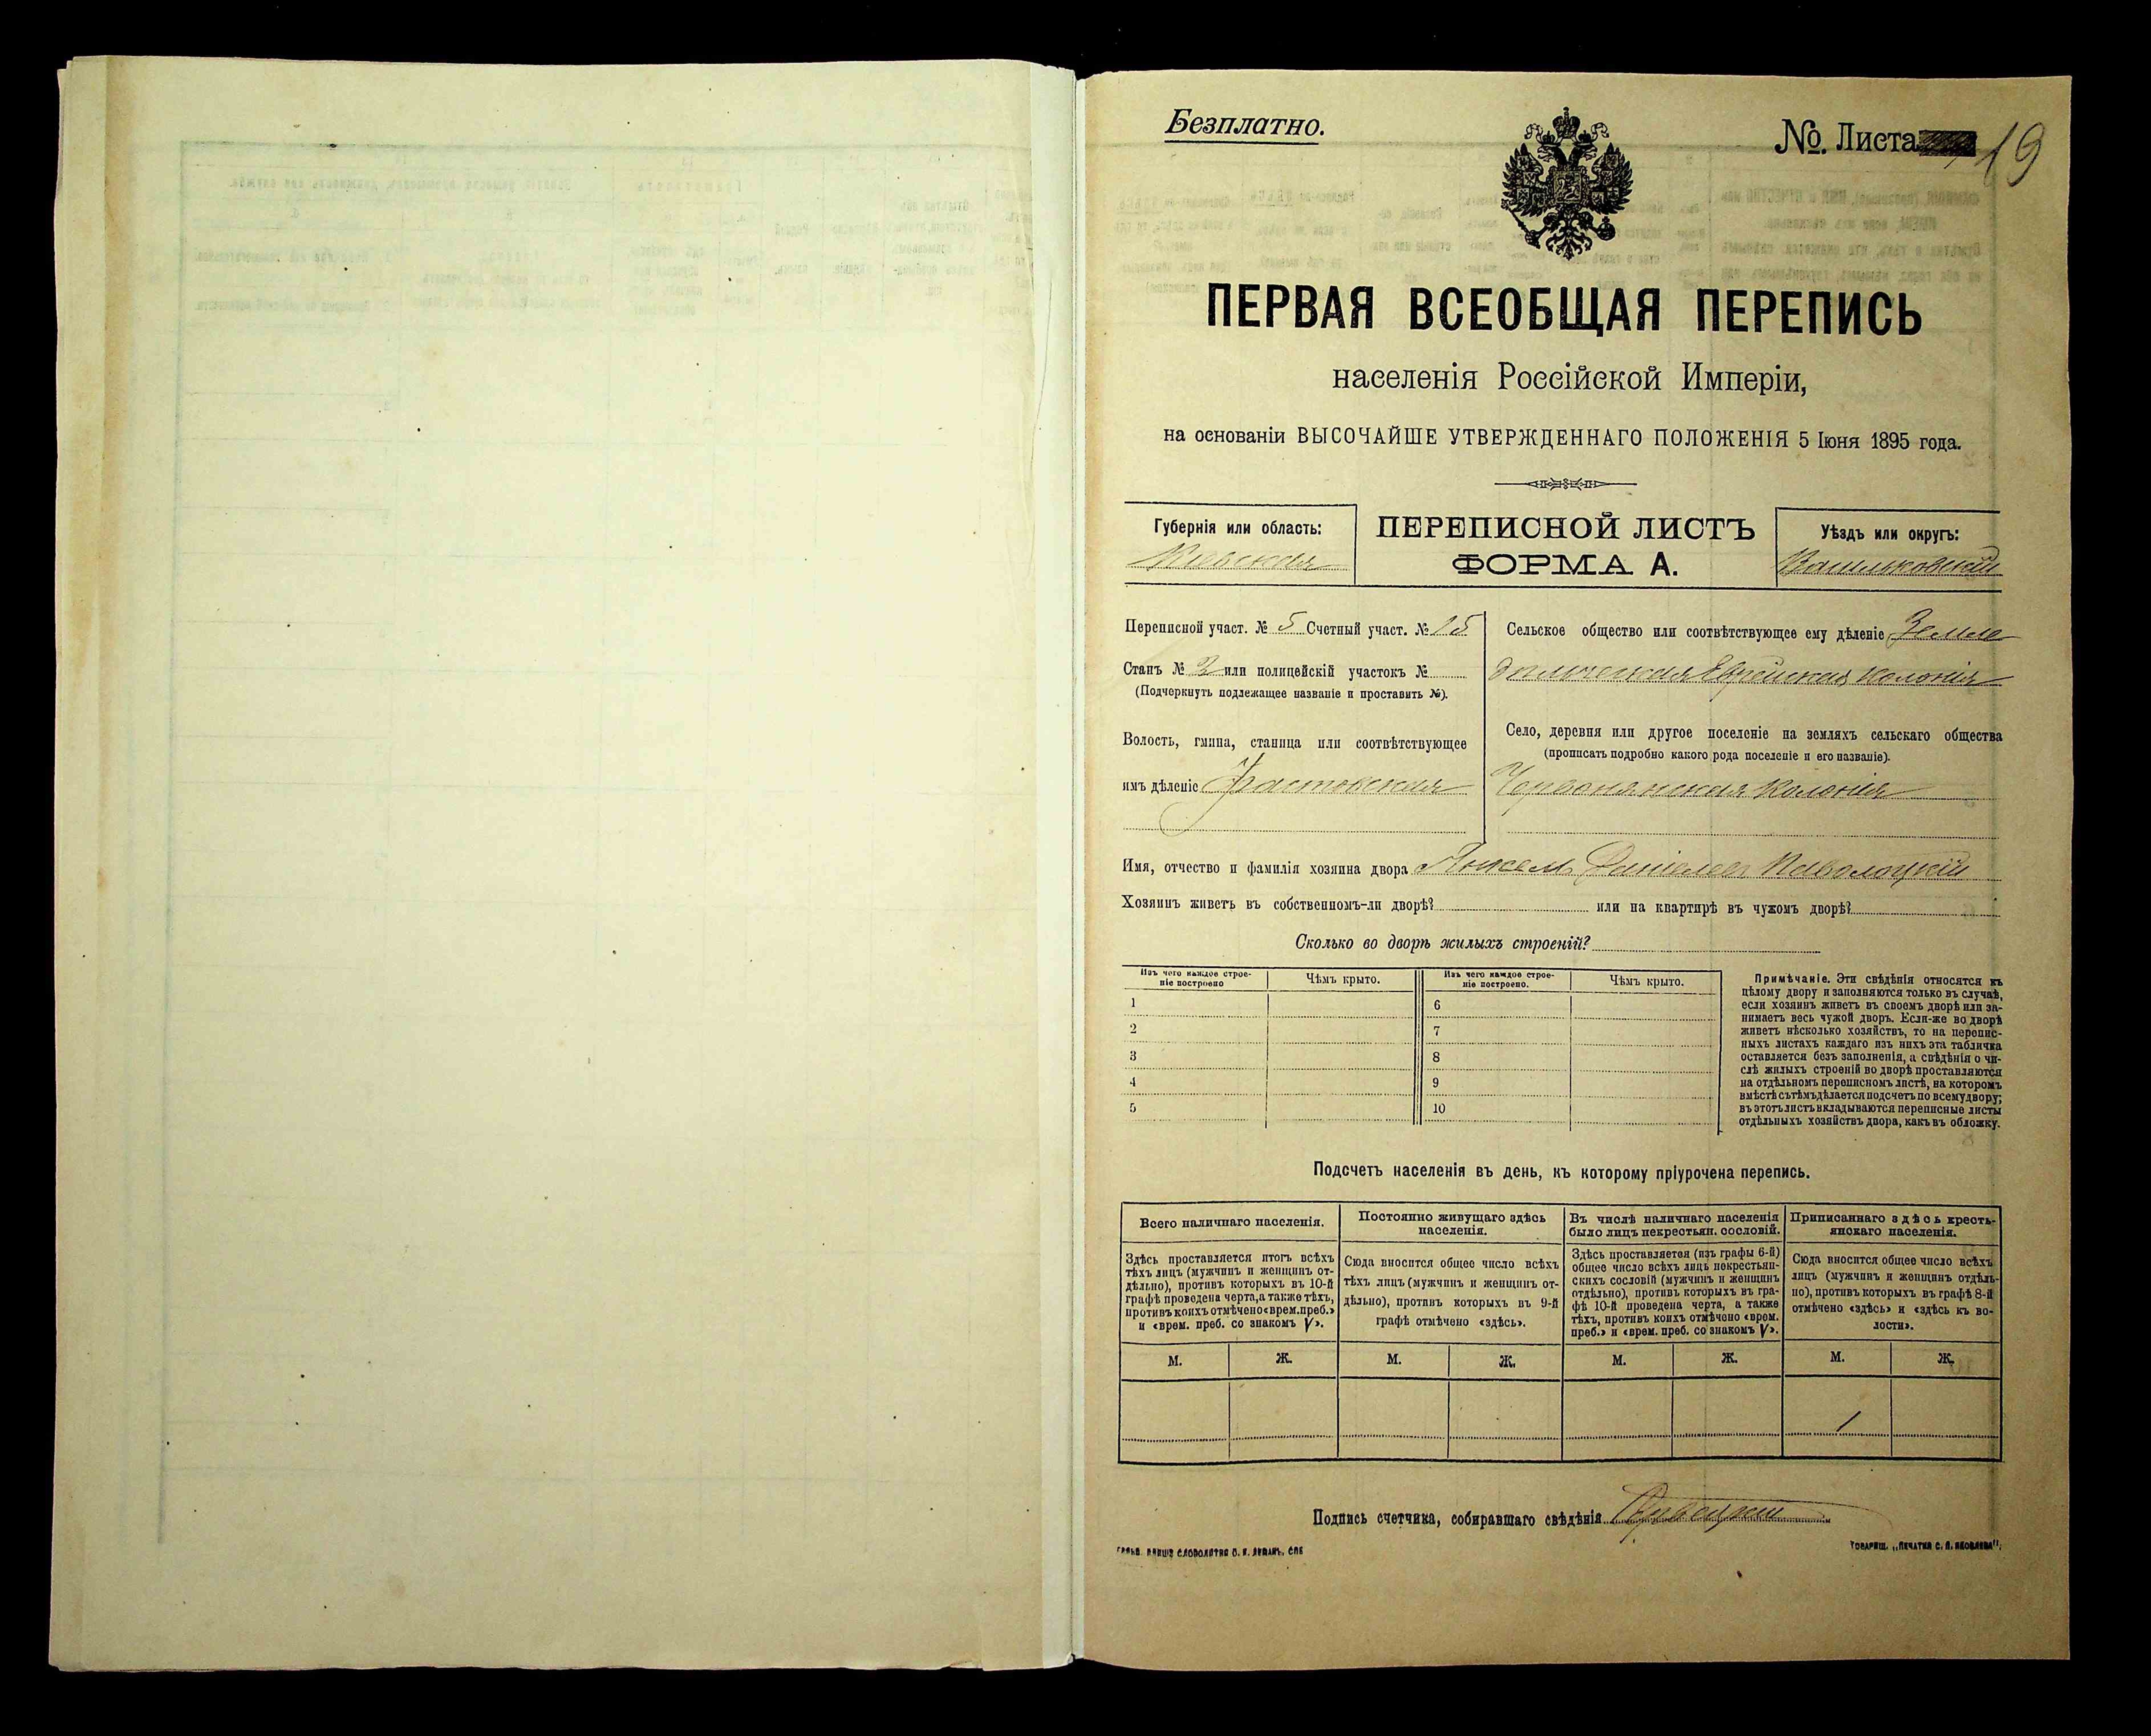 Безплатно.
№. Листа 19
ПЕРВАЯ ВСЕОБЩАЯ ПЕРЕПИСЬ
населенія Россійской Имперіи,
на основаніи ВЫСОЧАЙШЕ УТВЕРЖДЕННАГО ПОЛОЖЕНІЯ 5 Іюня 1895 года.
Губернія или область:
Кіевская
ПЕРЕПИСНОЙ ЛИСТЪ
ФОРМА А.
Уѣздъ или округъ:
Васильковскій
Переписной участ. № 5 Счетный участ. № 15
Станъ № 2 или полицейскій участокъ №
(Подчеркнуть подлежащее названіе и проставить №).
Волость, гмина, станица или соотвѣтствующее
имъ дѣленіе Фастовская
Сельское общество или соотвѣтствующее ему дѣленіе Земле
дѣльческая Еврейская колонія
Село, деревня или другое поселеніе на земляхъ сельскаго общества
(прописать подробно какого рода поселеніе и его названіе).
Червонянская Колонія
Имя, отчество и фамилія хозяина двора Анкель Даніелев Паволоцкій
Хозяинъ живетъ въ собственномъ-ли дворѣ? или на квартирѣ въ чужомъ дворѣ?
Сколько во дворѣ жилыхъ строеній?
Изъ чего каждое строе-
ніе построено
Чѣмъ крыто.
Изъ чего каждое строе-
ніе построено.
Чѣмъ крыто.
1
6
2
7
3
8
4
9
5
10
Примѣчаніе. Эти свѣдѣнія относятся къ
цѣлому двору и заполняются только въ случаѣ,
если хозяинъ живетъ въ своемъ дворѣ или за-
нимаетъ весь чужой дворъ. Если-же во дворѣ
живетъ нѣсколько хозяйствъ, то на перепис-
ныхъ листахъ каждаго изъ нихъ эта табличка
оставляется безъ заполненія, а свѣдѣнія о чи-
слѣ жилыхъ строеній во дворѣ проставляются
на отдѣльномъ переписномъ листѣ, на которомъ
вмѣстѣ съ тѣмъ дѣлается подсчетъ по всему двору;
въ этотъ листъ вкладываются переписные листы
отдѣльныхъ хозяйствъ двора, какъ въ обложку.
Подсчетъ населенія въ день, къ которому пріурочена перепись.
Всего наличнаго населенія.
Здѣсь проставляется итогъ всѣхъ
тѣхъ лицъ (мужчинъ и женщинъ от-
дѣльно), противъ которыхъ въ 10-й
графѣ проведена черта, а также тѣхъ,
противъ коихъ отмѣчено «врем. преб.»
и «врем. преб. со знакомъ V».
Постоянно живущаго здѣсь
населенія.
Сюда вносится общее число всѣхъ
тѣхъ лицъ (мужчинъ и женщинъ от-
дѣльно), противъ которыхъ въ 9-й
графѣ отмѣчено «здѣсь».
Въ числѣ наличнаго населенія
было лицъ некрестьян. сословій.
Здѣсь проставляется (изъ графы 6-й)
общее число всѣхъ лицъ некрестьян-
скихъ сословій (мужчинъ и женщинъ
отдѣльно), противъ которыхъ въ гра-
фѣ 10-й проведена черта, а также
тѣхъ, противъ коихъ отмѣчено «врем.
преб.» и «врем. преб. со знакомъ V».
Приписаннаго здѣсь кресть-
янскаго населенія.
Сюда вносится общее число всѣхъ
лицъ (мужчинъ и женщинъ отдѣль-
но), противъ которыхъ въ графѣ 8-й
отмѣчено «здѣсь» и «здѣсь къ во-
лости».
М. Ж. М. Ж. М. Ж. М. Ж.
1
Подпись счетчика, собиравшаго свѣдѣнія
СЛОВОЛИТНЯ О. И. ЛЕМАНЪ, СПБ
ТОВАРИЩ. „ПЕЧАТНЯ С. П. ЯКОВЛЕВА“.